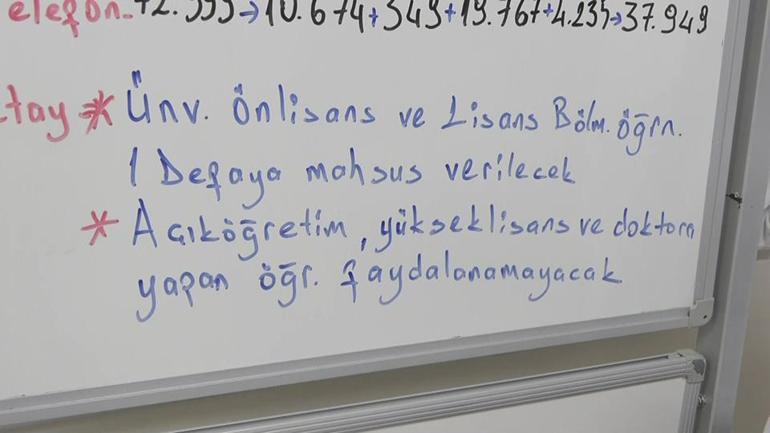 elefon 42.595→10.674+349+19.767+4.235→37.949
tay * Ünv. Önlisans ve Lisans Bölm. öğrn.
1 Defaya mahsus verilecek
* Açıköğretim, yükseklisans ve doktora
yapan öğr. faydalanamayacak